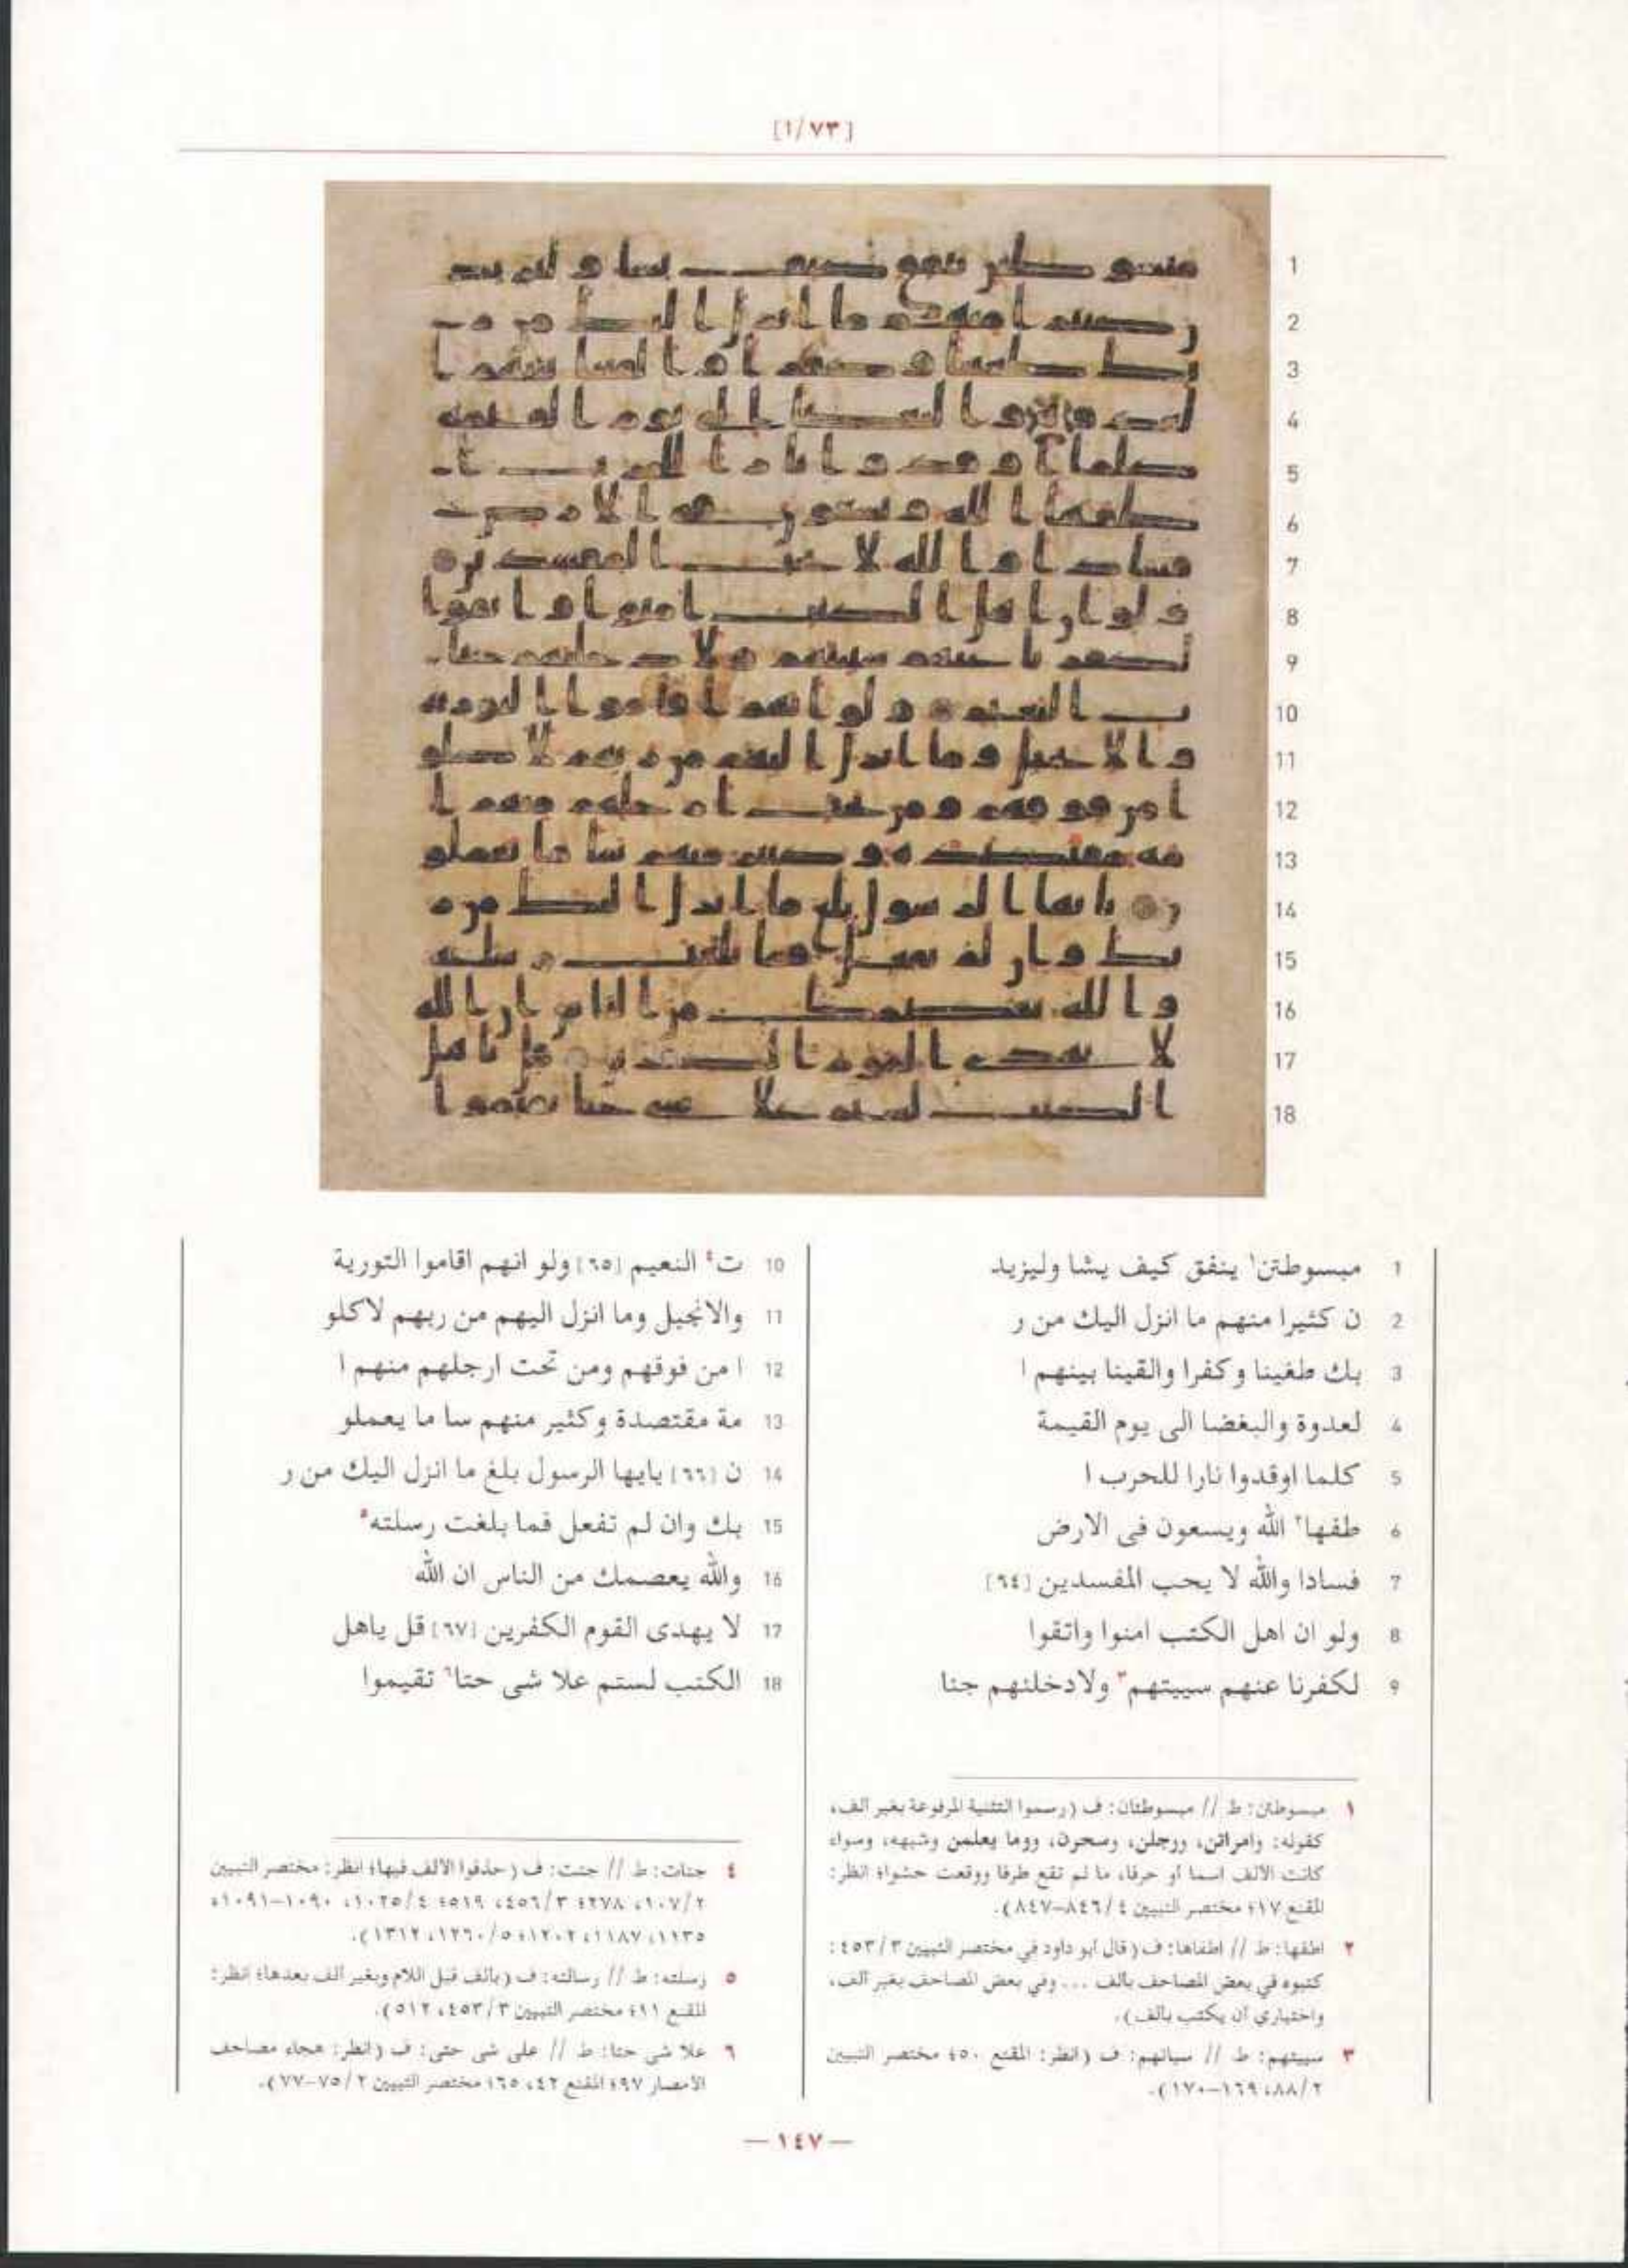 [١/٧٣]
1
2
3
4
5
6
7
8
9
10
11
12
13
14
15
16
17
18
1 مبسوطتن١ ينفق كيف يشا وليزيد
2 ن كثيرا منهم ما انزل اليك من ر
3 بك طغينا وكفرا والقينا بينهم ا
4 لعدوة والبغضا الى يوم القيمة
5 كلما اوقدوا نارا للحرب ا
6 طفها٢ الله ويسعون فى الارض
7 فسادا والله لا يحب المفسدين [٦٤]
8 ولو ان اهل الكتب امنوا واتقوا
9 لكفرنا عنهم سييتهم٣ ولادخلنهم جنا
10 ت٤ النعيم [٦٥] ولو انهم اقاموا التورية
11 والانجيل وما انزل اليهم من ربهم لاكلو
12 ا من فوقهم ومن تحت ارجلهم منهم ا
13 مة مقتصدة وكثير منهم سا ما يعملو
14 ن [٦٦] يايها الرسول بلغ ما انزل اليك من ر
15 بك وان لم تفعل فما بلغت رسلته٥
16 والله يعصمك من الناس ان الله
17 لا يهدى القوم الكفرين [٦٧] قل ياهل
18 الكتب لستم علا شى حتا٦ تقيموا
١ مبسوطتن: ط // مبسوطتان: ف (رسموا التثنية المرفوعة بغير الف،
كقوله: وامراتن، ورجلن، وسحرن، ووما يعلمن وشبهه، وسواء
كانت الألف اسما أو حرفا، ما لم تقع طرفا ووقعت حشوا؛ انظر:
المقنع ١٧؛ مختصر التبيين ٤/ ٨٤٦-٨٤٧).
٢ اطفها: ط // اطفاها: ف (قال أبو داود في مختصر التبيين ٣/ ٤٥٣:
كتبوه في بعض المصاحف بألف ... وفي بعض المصاحف بغير ألف،
واختياري أن يكتب بألف).
٣ سييتهم: ط // سياتهم: ف (انظر: المقنع ٥٠؛ مختصر التبيين
٢/ ٨٨، ١٦٩-١٧٠).
٤ جنات: ط // جنت: ف (حذفوا الألف فيها؛ انظر: مختصر التبيين
٢/ ١٠٧، ٢٧٨؛ ٣/ ٤٥٦، ٥١٩؛ ٤/ ١٠٢٥، ١٠٩٠-١٠٩١،
١١٣٥، ١١٨٧، ١٢٠٢؛ ٥/ ١٢٦٠، ١٣١٢).
٥ رسلته: ط // رسالته: ف (بألف قبل اللام وبغير ألف بعدها؛ انظر:
المقنع ١١؛ مختصر التبيين ٣/ ٤٥٣، ٥١٢).
٦ علا شى حتا: ط // على شى حتى: ف (انظر: هجاء مصاحف
الأمصار ٩٧؛ المقنع ٤٢، ٦٥؛ مختصر التبيين ٢/ ٧٥-٧٧).
— ١٤٧ —